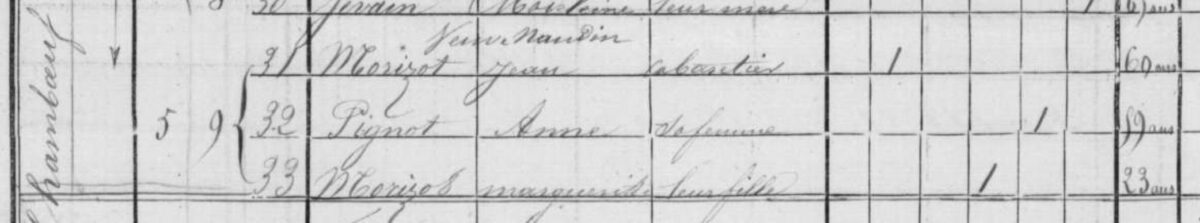 8 30 Jordin leur mere 1 ans
Veuve Naudin
31 Morizot Jean Cabaretier 1 60 ans
Chambœuf 5 9 32 Pignot Anne sa femme 1 59 ans
33 Morizot marguerite leur fille 1 23 ans